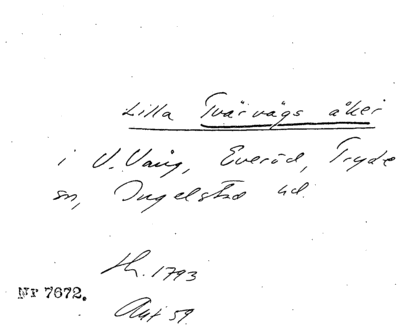 Lilla Tvärvägs åker
i V. Vång, Everöd, Tryde
sn, Ingelstad hd.
Sk. 1793
Nr 7672.
Akt 59